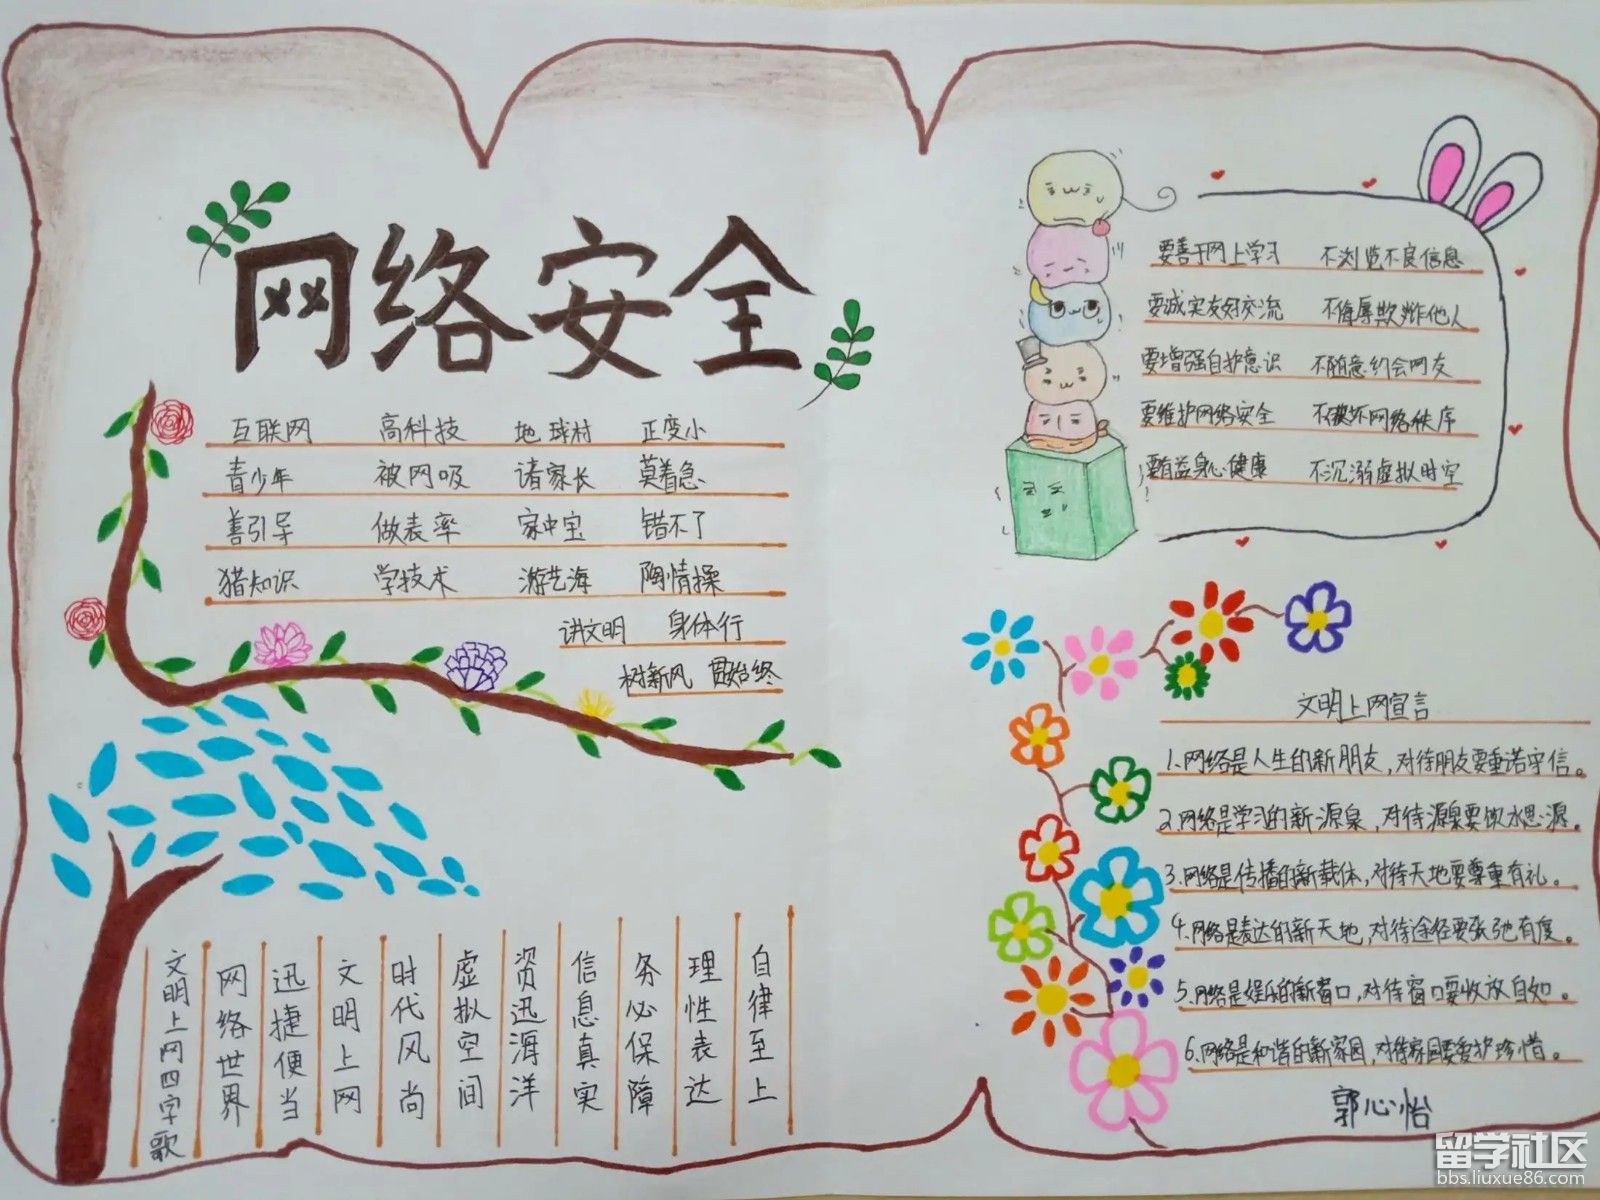 网络安全
互联网 高科技 地球村 正变小
青少年 被网吸 诸家长 莫着急
善引导 做表率 家中宝 错不了
猎知识 学技术 游艺海 陶情操
讲文明 身体行
树新风 贯始终
文明上网四字歌
网络世界
迅捷便当
文明上网
时代风尚
虚拟空间
资迅海洋
信息真实
务必保障
理性表达
自律至上
要善于网上学习 不浏览不良信息
要诚实友好交流 不侮辱欺炸他人
要增强自护意识 不随意约会网友
要维护网络安全 不破坏网络秩序
要有益身心健康 不沉溺虚拟时空
文明上网宣言
1.网络是人生的新朋友,对待朋友要重诺守信。
2.网络是学习的新源泉,对待源泉要饮水思源。
3.网络是传播的新载体,对待天地要尊重有礼。
4.网络是表达的新天地,对待途径要张弛有度。
5.网络是娱乐的新窗口,对待窗口要收放自如。
6.网络是和谐的新家园,对待家园要爱护珍惜。
郭心怡
留学社区
bbs.liuxue86.com